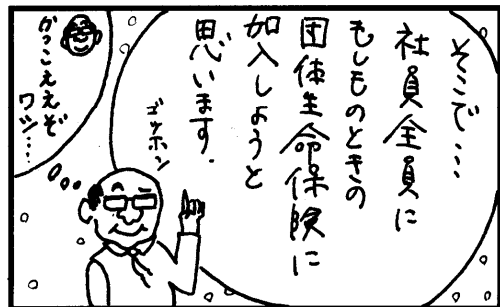 そこで…
社員全員に
もしものときの
団体生命保険に
加入しようと
思います.
ゴッホン
かっこええぞ
ワシ…